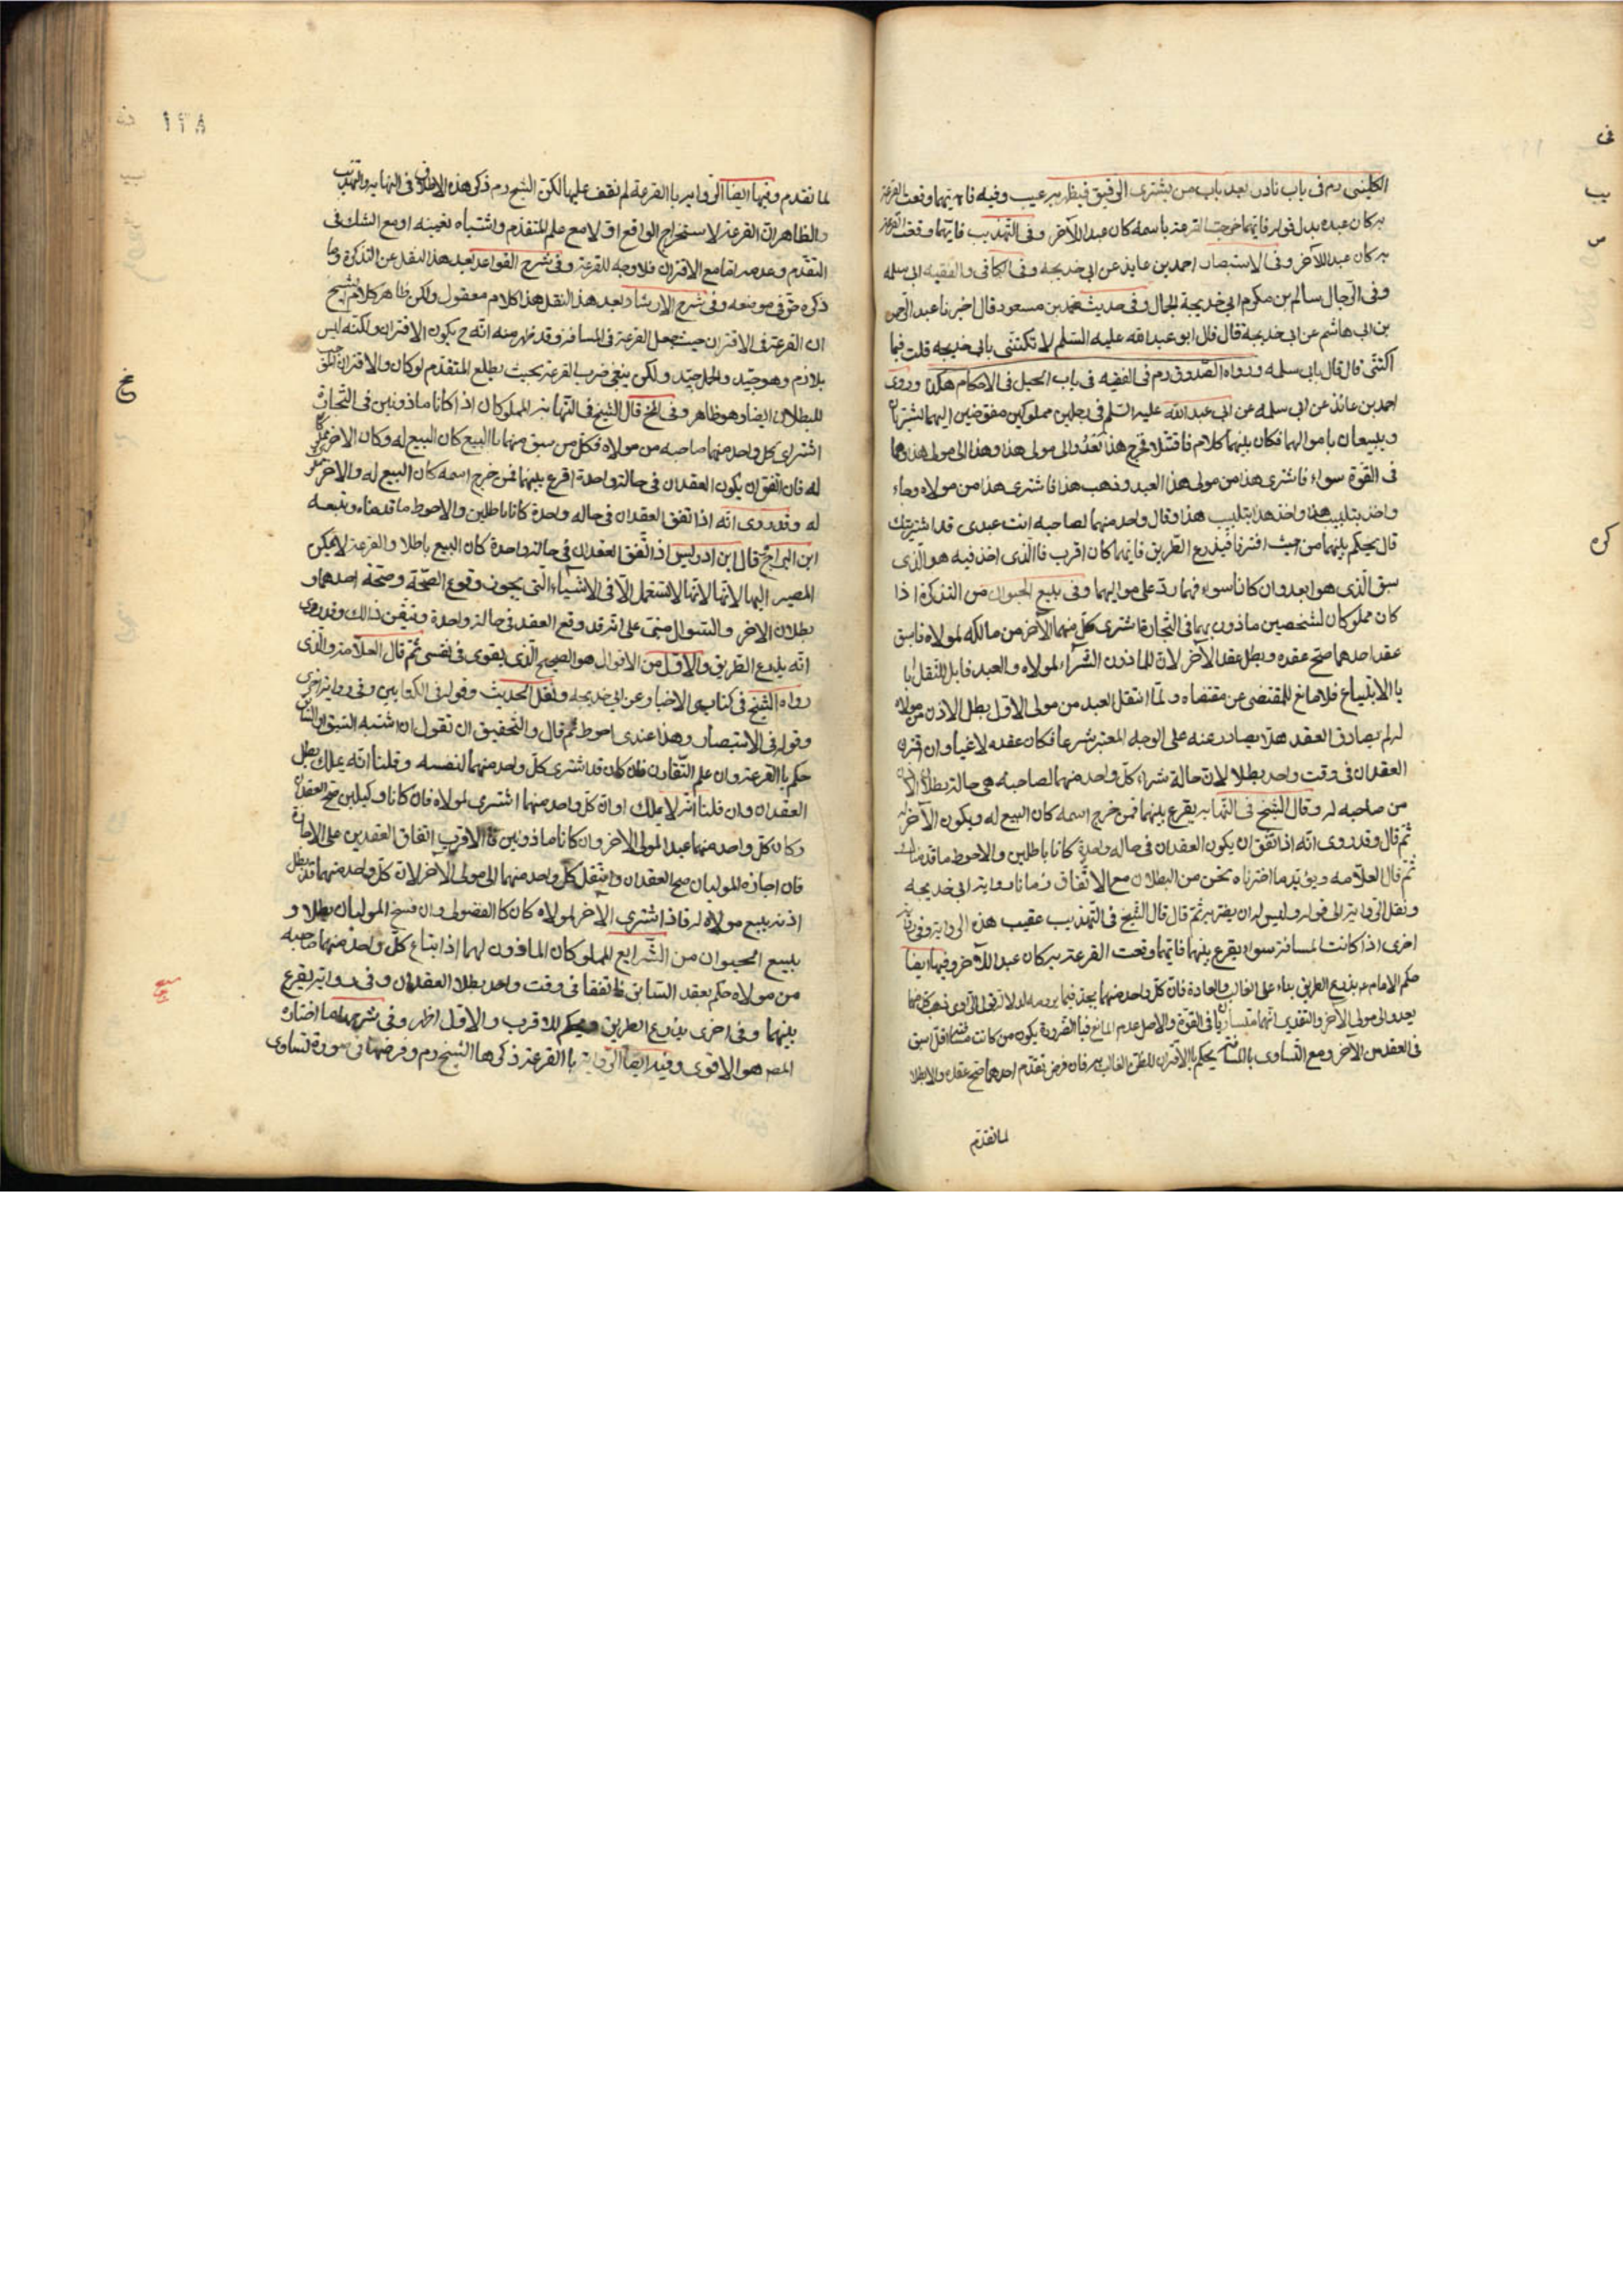 الكليني رم في باب نادر بعد باب من يشترى الرقيق فيظهر به عيب وفيه فايتهما وقعت القرعة
به كان عبده بدل قوله فايتهما خرجت القرعة باسمه كان عبدا للآخر وفي التهذيب فايتهما وقعت القرعة
به كان عبدا للآخر وفي الاستبصار احمد بن عايذ عن ابي خديجه وفي الكافي والفقيه ابي سلمه
وفي الرجال سالم بن مكرم ابي خديجة الجمال وفي حديث محمد بن مسعود قال اخبرنا عبد الرحمن
بن ابي هاشم عن ابي خديجة قال قال ابو عبد الله عليه السلم لا تكتني بابي خديجه قلت فبما
اكتنى قال قال بابي سلمه ورواه الصدوق رم في الفقيه في باب الحيل في الاحكام هكذا وروى
احمد بن عائذ عن ابي سلمه عن ابي عبد الله عليه السلم في رجلين مملوكين مفوضين اليهما يشتريان
ويبيعان باموالهما فكان بينهما كلام فاقتتلا فخرج هذا يعدو الى مولى هذا وهذا الى مولى هذا وهما
في القوة سواء فاشترى هذا من مولى هذا العبد وذهب هذا فاشترى هذا من مولاه وجاء
واخذ بتلبيب هذا واخذ هذا بتلبيب هذا وقال واحد منهما لصاحبه انت عبدى قد اشتريتك
قال يحكم بينهما من حيث افترقا فيذرع الطريق فايهما كان اقرب فالذى اخذ فيه هو الذى
سبق الذى هو ابعد وان كانا سواء فهما رد على مواليهما وفي بيع الحيوان من التذكرة اذا
كان مملوكان لشخصين ماذون لهما في التجارة فاشترى كل منهما الآخر من مالكه لمولاه فان سبق
عقد احدهما صح عقده وبطل عقد الآخر لان للماذون الشراء لمولاه والعبد قابل للنقل
بالابتياع فلا مانع للمقتضى عن مقتضاه ولما انتقل العبد من مولى الاول بطل الاذن من مولاه
له لم يصادف العقد هذا صادر عنه على الوجه المعتبر شرعا فكان عقده لاغيا وان اقترن
العقدان في وقت واحد بطلا لان حالة شراء كل واحد منهما لصاحبه هي حالة بطلان الاذن
من صاحبه له وقال الشيخ في النهايه يقرع بينهما فمن خرج اسمه كان البيع له ويكون الآخر
ثم قال وقد روى انه اذا اتفق ان يكون العقدان في حاله واحدة كانا باطلين والاحوط ما قدمناه
ثم قال العلامه ويؤيد ما اخترناه نحن من البطلان مع الاتفاق زمانا رواية ابي خديجه
ونقل الرواية الى قوله وليس له ان يفترقه ثم قال قال الشيخ في التهذيب عقيب هذه الرواية وفي رواية
اخرى اذا كانت المسافة سواء يقرع بينهما فايهما وقعت القرعة به كان عبدا للآخر وفيها ايضا
حكم الامام م بذرع الطريق بناء على الغالب والعادة فان كل واحد منهما
يعدو الى مولى الآخر والتقدير انهما متساويان في القوة والاصل عدم المانع فبالضرورة يكون من كانت مسافته اقل اسبق
في العقد من الآخر ومع التساوى بالمسافة يحكم بالاقتران للظن الغالب به فان فرض تقدم احدهما صح عقده والا بطلا
لما تقدم
١٩٨
لما تقدم وفيها ايضا الرواية بالقرعة لم نقف عليها لكن الشيخ رم ذكر هذه الاطلاق في النهايه والتهذيب
والظاهر ان القرعة لاستخراج الواقع اولا مع علم المتقدم واشتباه تعيينه او مع الشك في
التقدم وعدمه اما مع الاقتران فلا وجه للقرعة وفي شرح القواعد بعد هذا النقل عن التذكرة وما
ذكره حق في موضعه وفي شرح الارشاد بعد هذا النقل هذا كلام معقول ولكن ظاهر كلام الشيخ
ان القرعة في الاقتران حيث جعل القرعة في المسافة وقد فهم منه انه ح يكون الاقتران ولكنه ليس
بلازم وهو جيد والحمل جيد ولكن ينبغي ضرب القرعة بحيث يطلع المتقدم لو كان والاقتران الموجب
للبطلان ايضا وهو ظاهر وفي المخ قال الشيخ في النهايه المملوكان اذا كانا ماذونين في التجارة
اشترى كل واحد منهما صاحبه من مولاه فكل من سبق منهما بالبيع كان البيع له وكان الاخر مملوكا
له فان اتفق ان يكون العقدان في حالة واحدة اقرع بينهما فمن خرج اسمه كان البيع له والاخر مملوكا
له وقد روى انه اذا اتفق العقدان في حاله واحدة كانا باطلين والاحوط ما قدمناه وتبعه
ابن البراج قال ابن ادريس اذا اتفق العقدان في حالة واحدة كان البيع باطلا والقرعة لا يمكن
المصير اليها لانها لانها لا تستعمل الا في الاشياء التي يجوز وقوع الصحة وصحة احدهما و
بطلان الاخر والسؤال مبني على انه قد وقع العقد في حالة واحدة وتيقن ذلك وقد روى
انه يذرع الطريق والاول من الاقوال هو الصحيح الذى يقوى في نفسى ثم قال العلامة والذى
رواه الشيخ في كتابي الاخبار عن ابي خديجه ونقل الحديث وقوله في الكتابين وفي رواية اخرى
وقوله في الاستبصار وهذا عندى احوط ثم قال والتحقيق ان نقول ان اشتبه السبق او السابق
حكم بالقرعة وان علم التقارن فان كان قد اشترى كل واحد منهما لنفسه وقلنا انه يملك بطل
العقدان وان قلنا انه لا يملك او ان كل واحد منهما اشترى لمولاه فان كانا وكيلين صح العقدان
وكان كل واحد منهما عبدا لمولى الاخر وان كانا ماذونين فالاقرب اتفاق العقدين على الاجازة
فان اجازه الموليان صح العقدان وانتقل كل واحد منهما الى مولى الآخر لان كل واحد منهما قد بطل
اذنه ببيع مولاه له فاذا اشترى الآخر لمولاه كان كالفضولى وان فسخ الموليان بطلا و
ببيع الحيوان من الشرايع المملوكان الماذون لهما اذا ابتاع كل واحد منهما صاحبه
من مولاه حكم بعقد السابق فان اتفقا في وقت واحد بطل العقدان وفي رواية يقرع
بينهما وفي اخرى بذرع الطريق ويحكم للاقرب والاول اظهر وفي شرحه ما اختاره
المص هو الاقوى وفيه ايضا الرواية بالقرعة ذكرها الشيخ رم وفرضها في صورة تساوى